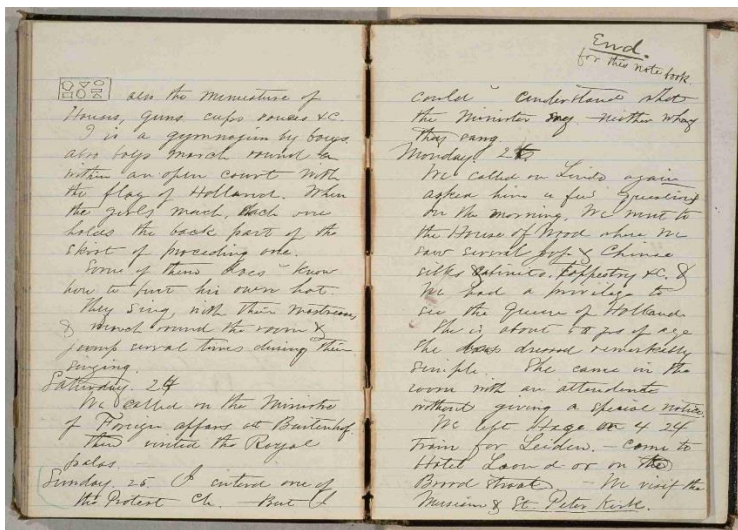 are the miniature of
Houses, guns cups vases &c.
I is a gymnasium by boys.
also boys march round &
within an open court with
the flag of Holland. When
the girls mach, each one
holds the back part of the
skirt of preceding one.
Some of them does n know
how to put his own hat.
They sing, with their mistresses
& march round the room &
jump serval times during their
singing.
Saturday. 24
We called on the Ministre
of Foreign affairs at Buitenhof.
then visited the Royal
palas.
Sunday. 25. I entered one of
the Protest Ch. But I
End.
for this note book.
could n understand what
the Minister say neither whay
they sang.
Monday. 26.
We called on again
asked him a few questions
on the morning. We went to
the House of Wood where we
saw several Jap & Chinese
silks & cabinets. tappestry &c. &
We had a privilege to
see the Queen of Holland
She is about yrs of age
She was dressed remarkably
simple. She came in the
room with an attendente
without giving a special notice.
We left Hage at 4 24
train for Leiden. – come to
Hotel on the
Breed straat – We visit the
Museum & St. Peter Kirk.